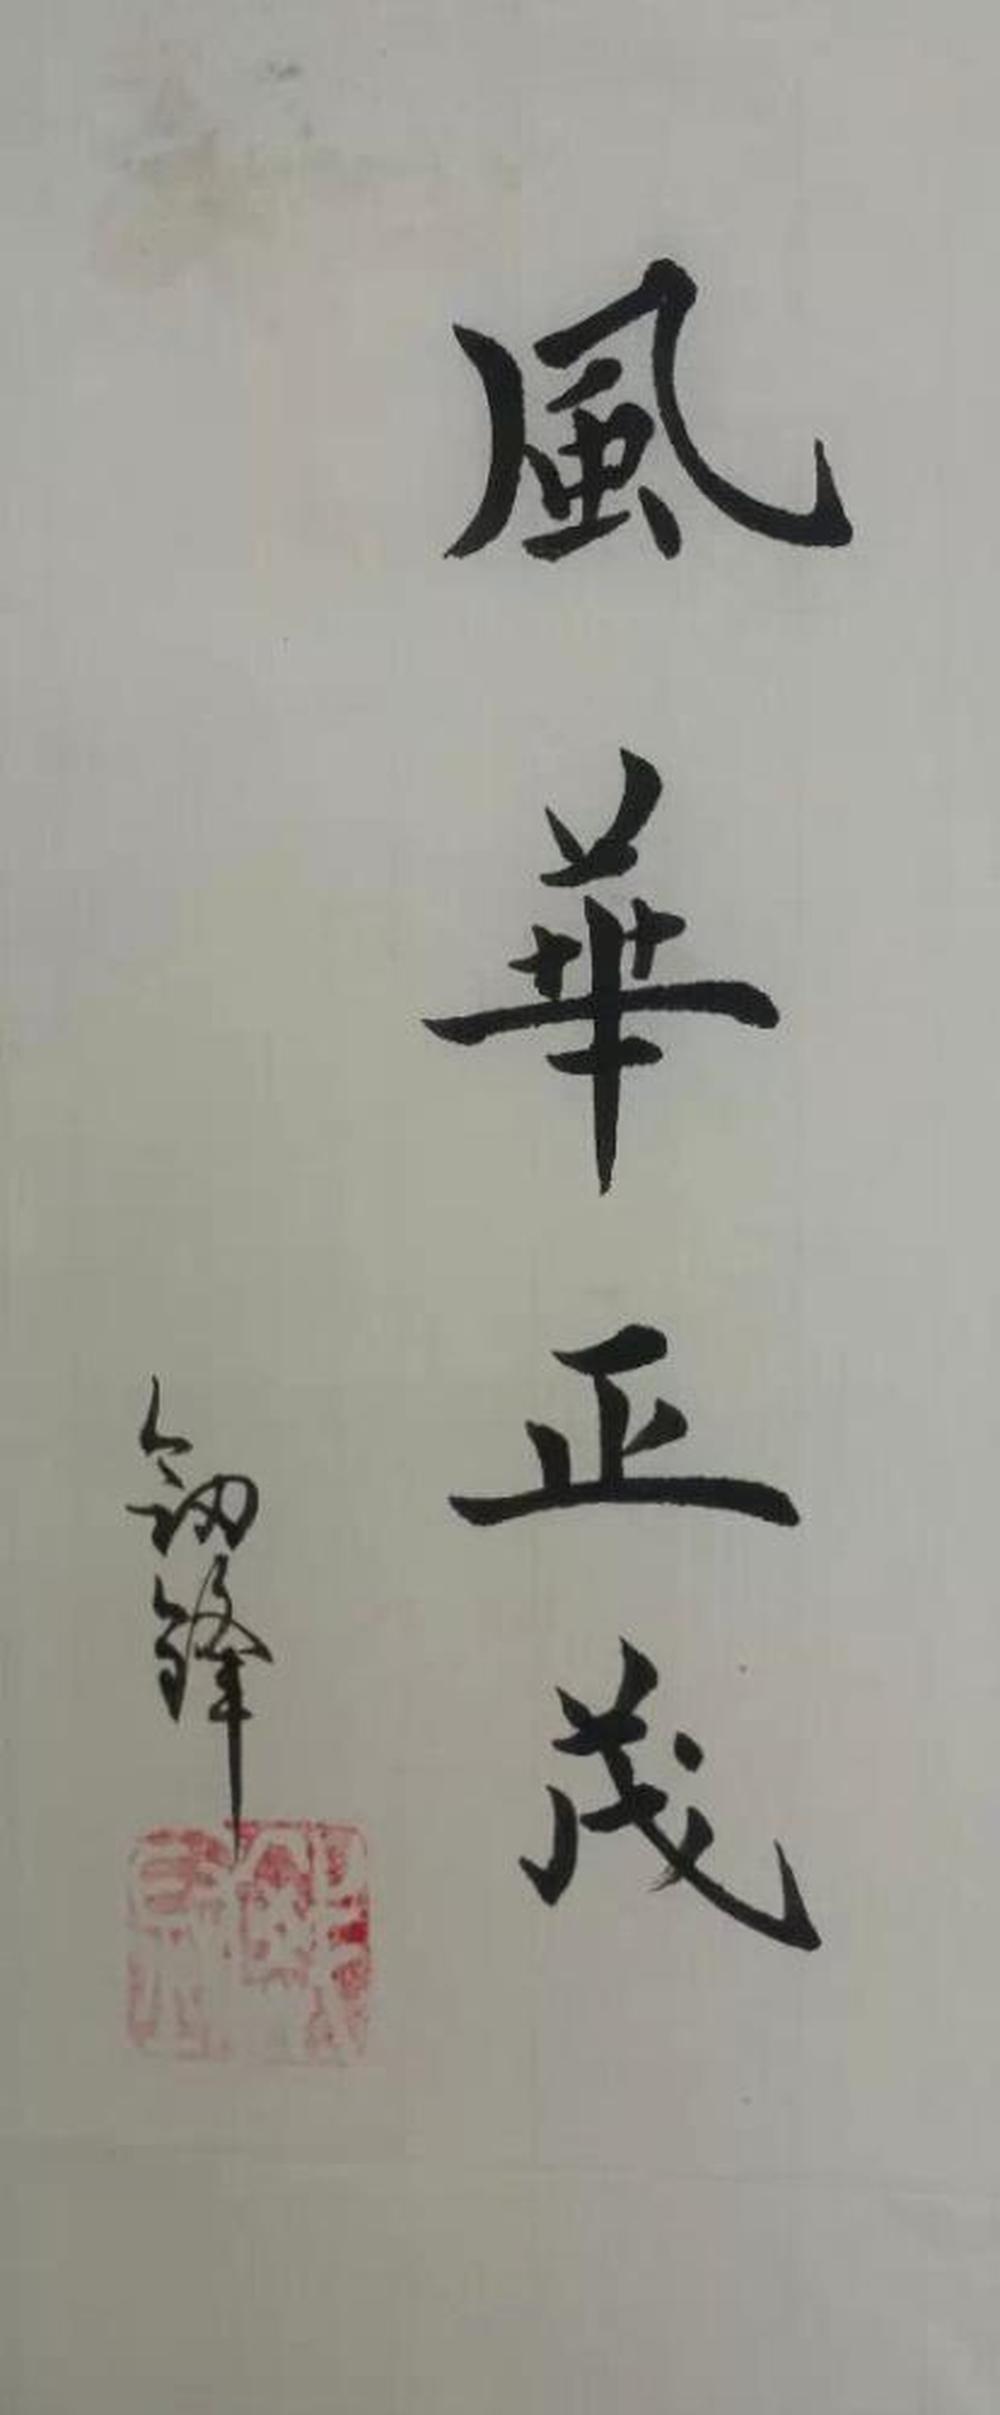 風華正茂
劍鋒